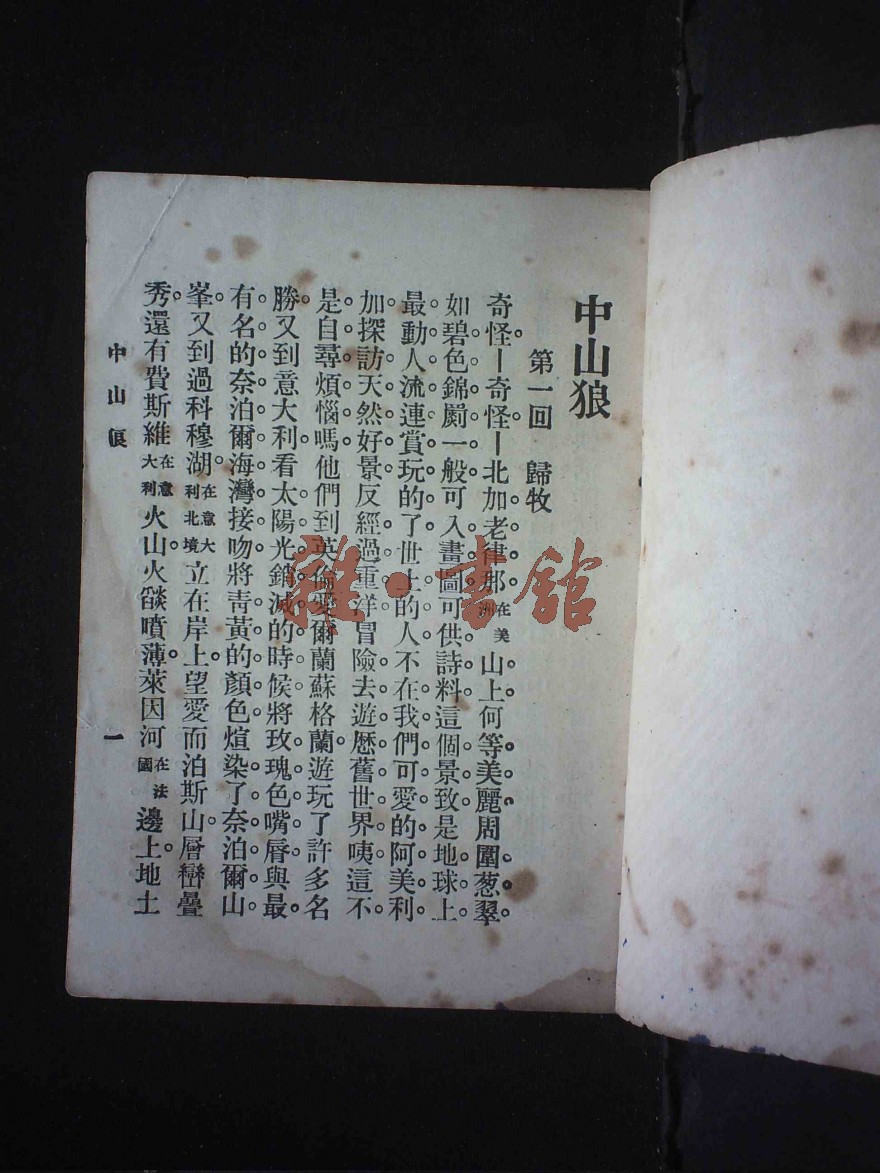 中山狼
第一回　歸牧
奇怪ー奇怪ー北加老律那在美洲山上何等美麗。周圍葱翠。
如碧色錦罽一般。可入畫圖。可供詩料。這個景致是地球上
最動人流連賞玩的了。世上的人不在我們可愛的阿美利
加探訪天然好景。反經過重洋。冒險去遊歷舊世界。咦這不
是自尋煩惱嗎。他們到英倫愛爾蘭蘇格蘭。遊玩了許多名
勝。又到意大利看太陽光銷滅的時候。將玫瑰色嘴脣與最
有名的奈泊爾海灣接吻。將靑黃的顏色煊染了奈泊爾山
峯。又到過科穆湖。在意大利北境立在岸上。望愛而泊斯山。層巒疊
秀。還有費斯維在意大利火山。火燄噴薄。萊因河在法國邊上。地土
中山狼
一
雜·書館